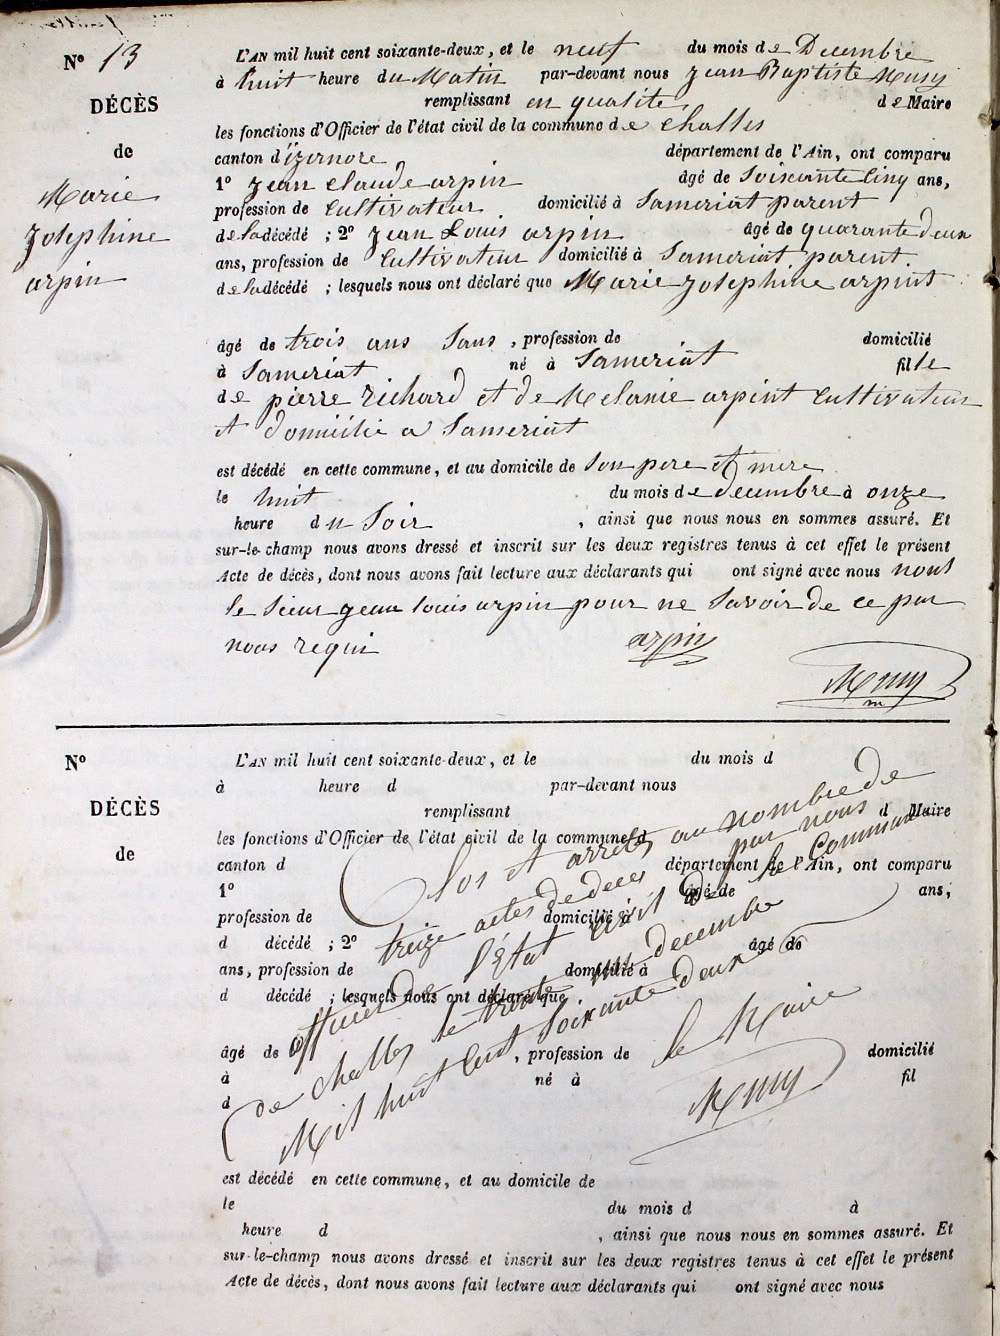 No 13
DÉCÈS
de
Marie
Josephine
arpin
L'AN mil huit cent soixante-deux, et le neuf du mois de Decembre
à huit heure du Matin par-devant nous Jean Baptiste
remplissant en qualité de Maire
les fonctions d'Officier de l'état civil de la commune de challes
canton d'izernore département de l'Ain, ont comparu
1o Jean Claude arpin âgé de Soixante Cinq ans,
profession de Cultivateur domicilié à Sameriat parent
de la décédé ; 2o Jean Louis arpin âgé de quarante deux
ans, profession de Cultivateur domicilié à Sameriat parent
de la décédé ; lesquels nous ont déclaré que Marie Josephine arpint
âgé de trois ans Sans , profession de domicilié
à Sameriat né à Sameriat fille
de pierre Richard et de Melanie arpint Cultivateur
et domicilié a Sameriat
est décédé en cette commune, et au domicile de Son pere et mere
le huit du mois de decembre à onze
heure du Soir , ainsi que nous nous en sommes assuré. Et
sur-le-champ nous avons dressé et inscrit sur les deux registres tenus à cet effet le présent
Acte de décès, dont nous avons fait lecture aux déclarants qui ont signé avec nous nont
le Sieur jean louis arpin pour ne Savoir de ce par
nous requi arpin
No
DÉCÈS
de
L'AN mil huit cent soixante-deux, et le du mois d
à heure d par-devant nous
remplissant d Maire
les fonctions d'Officier de l'état civil de la commune d
canton d département de l'Ain, ont comparu
1o âgé de ans,
profession de domicilié à
d décédé ; 2o âgé de
ans, profession de domicilié à
d décédé ; lesquels nous ont déclaré que
âgé de , profession de domicilié
à né à fil
d
Clos et arrêté au nombre de
treize actes de deces par nous
officier de l'état civil de la Commune
de challes le trente un decembre
Mil huit cent Soixante deux
le Maire
est décédé en cette commune, et au domicile de
le du mois d à
heure d , ainsi que nous nous en sommes assuré. Et
sur-le-champ nous avons dressé et inscrit sur les deux registres tenus à cet effet le présent
Acte de décès, dont nous avons fait lecture aux déclarants qui ont signé avec nous